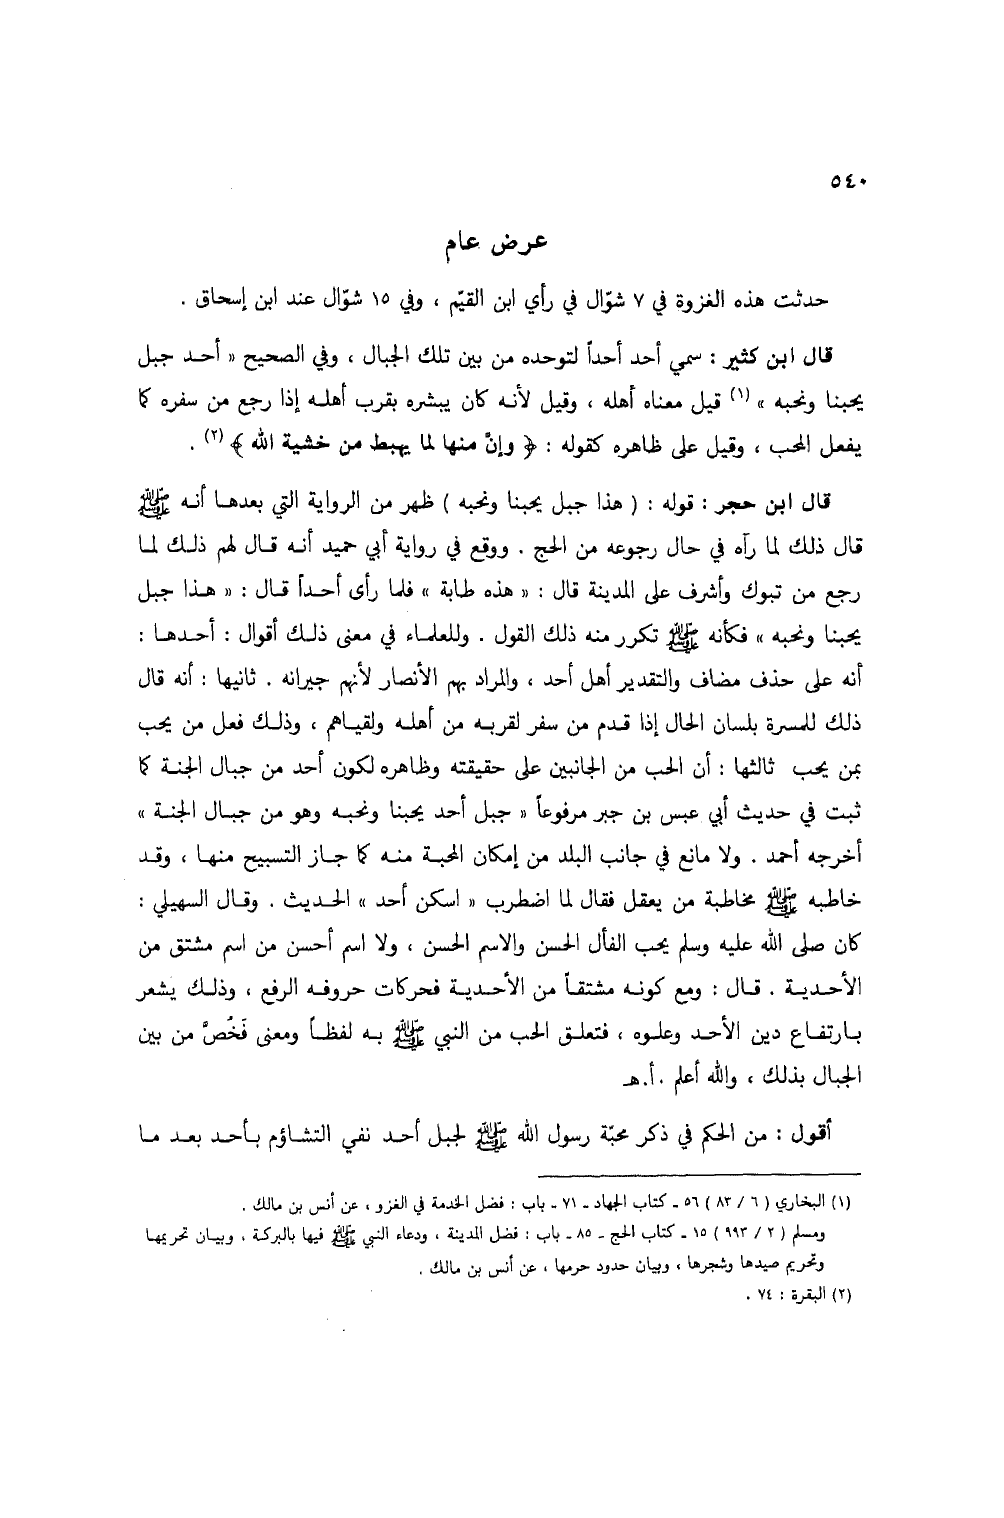 ٥٤٠
عرض عام
حدثت هذه الغزوة في ٧ شوّال في رأي ابن القيّم ، وفي ١٥ شوّال عند ابن إسحاق .
قال ابن كثير : سمي أحد أحداً لتوحده من بين تلك الجبال ، وفي الصحيح « أحد جبل
يحبنا ونحبه » (١) قيل معناه أهله ، وقيل لأنه كان يبشره بقرب أهله إذا رجع من سفره كما
يفعل المحب ، وقيل على ظاهره كقوله : ﴿ وإنَّ منها لما يهبط من خشية الله ﴾ (٢) .
قال ابن حجر : قوله : ( هذا جبل يحبنا ونحبه ) ظهر من الرواية التي بعدها أنه ﷺ
قال ذلك لما رآه في حال رجوعه من الحج . ووقع في رواية أبي حميد أنه قال لهم ذلك لما
رجع من تبوك وأشرف على المدينة قال : « هذه طابة » فلما رأى أحداً قال : « هذا جبل
يحبنا ونحبه » فكأنه ﷺ تكرر منه ذلك القول . وللعلماء في معنى ذلك أقوال : أحدها :
أنه على حذف مضاف والتقدير أهل أحد ، والمراد بهم الأنصار لأنهم جيرانه . ثانيها : أنه قال
ذلك للمسرة بلسان الحال إذا قدم من سفر لقربه من أهله ولقياهم ، وذلك فعل من يحب
بمن يحب ثالثها : أن الحب من الجانبين على حقيقته وظاهره لكون أحد من جبال الجنة كما
ثبت في حديث أبي عبس بن جبر مرفوعاً « جبل أحد يحبنا ونحبه وهو من جبال الجنة »
أخرجه أحمد . ولا مانع في جانب البلد من إمكان المحبة منه كما جاز التسبيح منها ، وقد
خاطبه ﷺ مخاطبة من يعقل فقال لما اضطرب « اسكن أحد » الحديث . وقال السهيلي :
كان صلى الله عليه وسلم يحب الفأل الحسن والاسم الحسن ، ولا اسم أحسن من اسم مشتق من
الأحدية . قال : ومع كونه مشتقاً من الأحدية فحركات حروفه الرفع ، وذلك يشعر
بارتفاع دين الأحد وعلوه ، فتعلق الحب من النبي ﷺ به لفظاً ومعنى فَخُصَّ من بين
الجبال بذلك ، والله أعلم .أ.هـ
أقول : من الحكم في ذكر محبّة رسول الله ﷺ لجبل أحد نفي التشاؤم بأحد بعد ما
(١) البخاري ( ٦ / ٨٣ ) ٥٦ ـ كتاب الجهاد ـ ٧١ ـ باب : فضل الخدمة في الغزو ، عن أنس بن مالك .
ومسلم ( ٢ / ٩٩٣ ) ١٥ ـ كتاب الحج ـ ٨٥ ـ باب : فضل المدينة ، ودعاء النبي ﷺ فيها بالبركة ، وبيان تحريمها
وتحريم صيدها وشجرها ، وبيان حدود حرمها ، عن أنس بن مالك .
(٢) البقرة : ٧٤ .